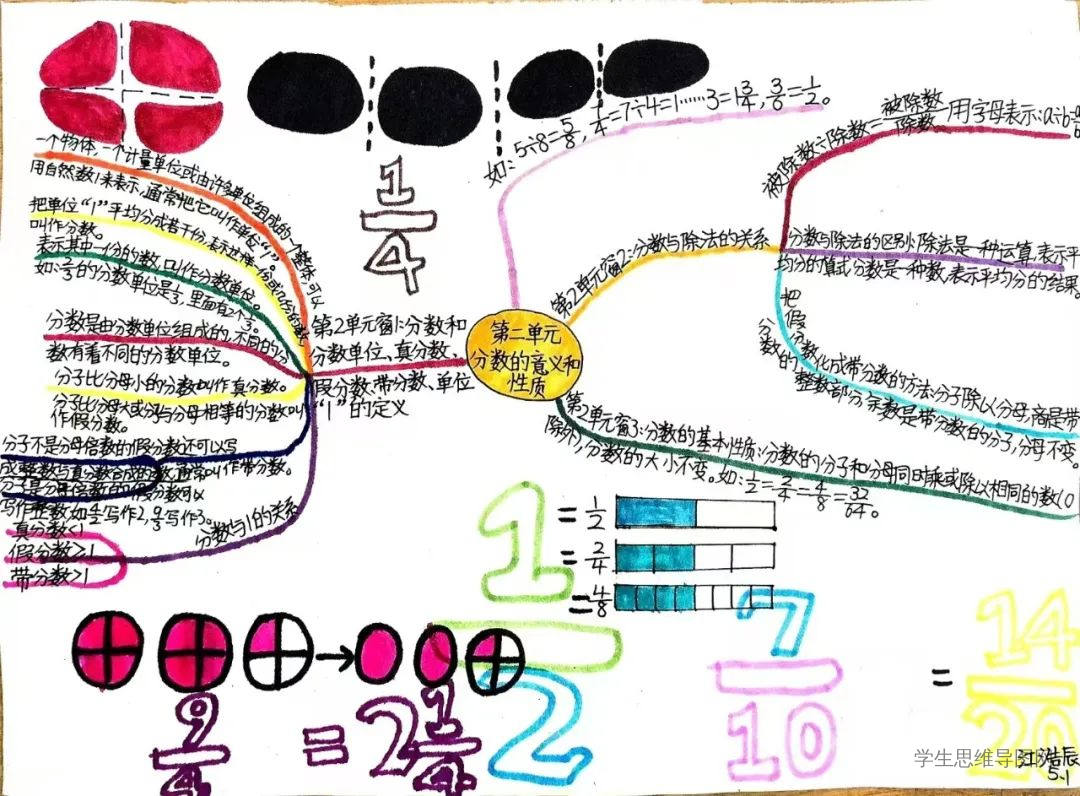 一个物体,一个计量单位或由许多单位组成的一个整体可以
用自然数1来表示,通常把它叫作单位“1”。
把单位“1”平均分成若干份,表示这样一份或几份的数
叫作分数。
表示其中一份的数,叫作分数单位。
如:2/3的分数单位是1/3,里面有2个1/3。
分数是由分数单位组成的,不同的分
数有着不同的分数单位。
分子比分母小的分数叫作真分数。
分子比分母大或分子与分母相等的分数叫
作假分数。
分子不是分母倍数的假分数还可以写
成整数与真分数合成的数,通常叫作带分数。
分子是分母倍数的假分数可以
写作整数,如4/2写作2,9/3写作3。
真分数<1
假分数≥1
带分数>1
分数与1的关系
第2单元窗1:分数和
分数单位、真分数、
假分数、带分数、单位
“1”的定义
1/4
第二单元
分数的意义和
性质
如:5÷8=5/8,7/4=7÷4=1……3=1 3/4,3/6=1/2。
第2单元窗2:分数与除法的关系
被除数÷除数=被除数/除数
用字母表示:a÷b=a/b
分数与除法的区别:除法是一种运算,表示平
均分的算式,分数是一种数,表示平均分的结果。
把假分数化成带分数的方法:分子除以分母,商是带
分数的整数部分,余数是带分数的分子,分母不变。
第2单元窗3:分数的基本性质:分数的分子和分母同时乘或除以相同的数(0
除外),分数的大小不变。如:1/2=2/4=4/8=32/64。
1/2
=1/2
=2/4
=4/8
7/10 = 14/20
9/4 = 2 1/4
学生思维导图
5.1